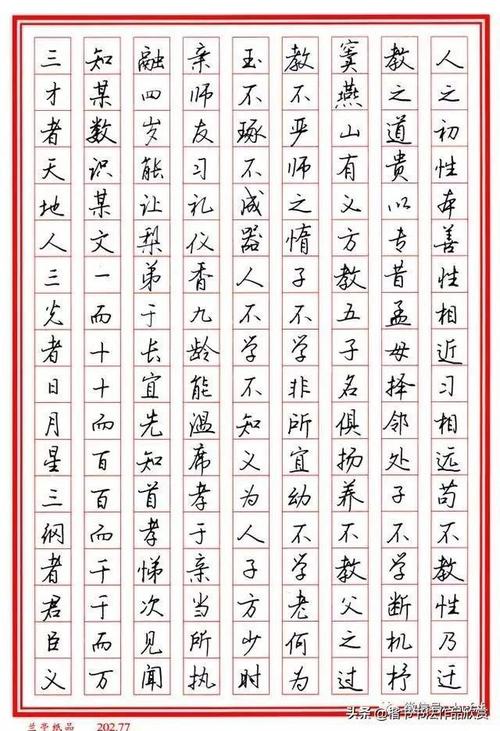 人之初性本善性相近习相远苟不教性乃迁
教之道贵以专昔孟母择邻处子不学断机杼
窦燕山有义方教五子名俱扬养不教父之过
教不严师之惰子不学非所宜幼不学老何为
玉不琢不成器人不学不知义为人子方少时
亲师友习礼仪香九龄能温席孝于亲当所执
融四岁能让梨弟于长宜先知首孝悌次见闻
知某数识某文一而十十而百百而千千而万
三才者天地人三光者日月星三纲者君臣义
兰亭纸品 202.77
头条@楷书书法作品欣赏